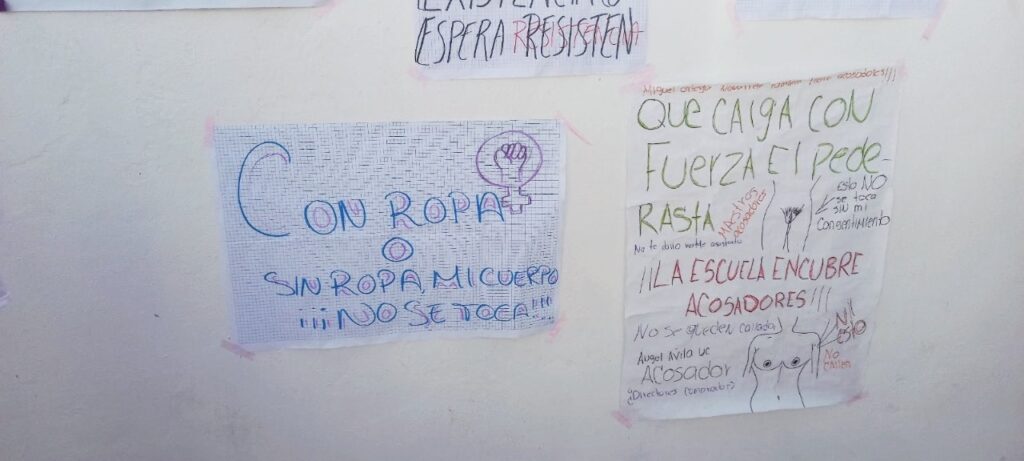 ESPERA RESISTEN
CON ROPA
O
SIN ROPA, MI CUERPO
¡¡¡NO SE TOCA!!!
acosadores!!!
QUE CAIGA CON
FUERZA El PEDE-
RASTA
MAESTROS
acosadores
Esto NO
se toca
SIN mi
Consentimiento
¡¡LA ESCUELA ENCUBRE
ACOSADORES!!!
NO Se queden calladas
NI
ESTO
Angel Avila Uc
ACOSADOR
No
callen